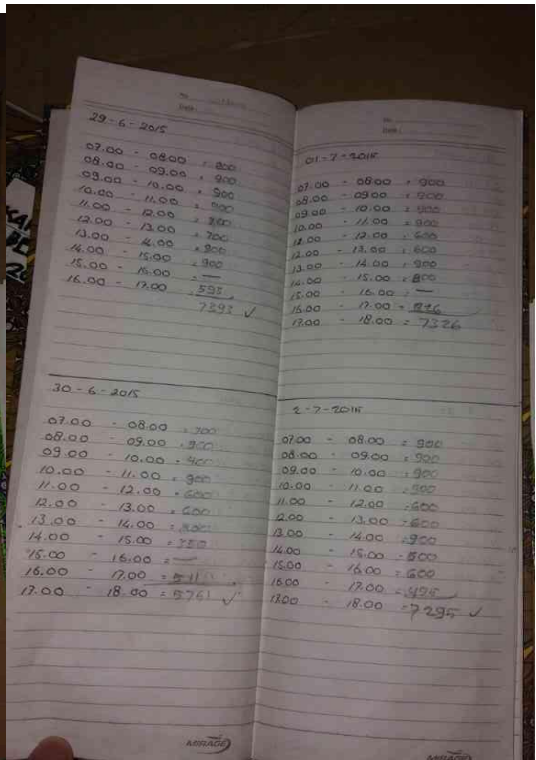 29-6-2015
07.00 - 08.00 = 800
08.00 - 09.00 = 900
09.00 - 10.00 = 900
10.00 - 11.00 = 900
11.00 - 12.00 = 800
12.00 - 13.00 = 700
13.00 - 14.00 = 900
14.00 - 15.00 = 900
15.00 - 16.00 = —
16.00 - 17.00 593
7393 ✓
30-6-2015
07.00 - 08.00 = 700
08.00 - 09.00 = 900
09.00 - 10.00 = 400
10.00 - 11.00 = 900
11.00 - 12.00 = 600
12.00 - 13.00 = 600
13.00 - 14.00 =
14.00 - 15.00 = 350
15.00 - 16.00 = —
16.00 - 17.00 =
17.00 - 18.00 = 5761 ✓
MIRAGE
01-7-2015
07.00 - 08.00 = 900
08.00 - 09.00 = 900
09.00 - 10.00 = 900
10.00 - 11.00 = 900
12.00 - 12.00 = 600
12.00 - 13.00 = 600
13.00 - 14.00 = 900
14.00 - 15.00 = 800
15.00 - 16.00 = —
16.00 - 17.00 = 826
17.00 - 18.00 = 7326
2-7-2015
07.00 - 08.00 = 900
08.00 - 09.00 = 900
09.00 - 10.00 = 900
10.00 - 11.00 = 900
11.00 - 12.00 = 600
12.00 - 13.00 = 600
13.00 - 14.00 = 900
14.00 - 15.00 = 500
15.00 - 16.00 = 600
16.00 - 17.00 = 495
17.00 - 18.00 = 7295 ✓
MIRAGE